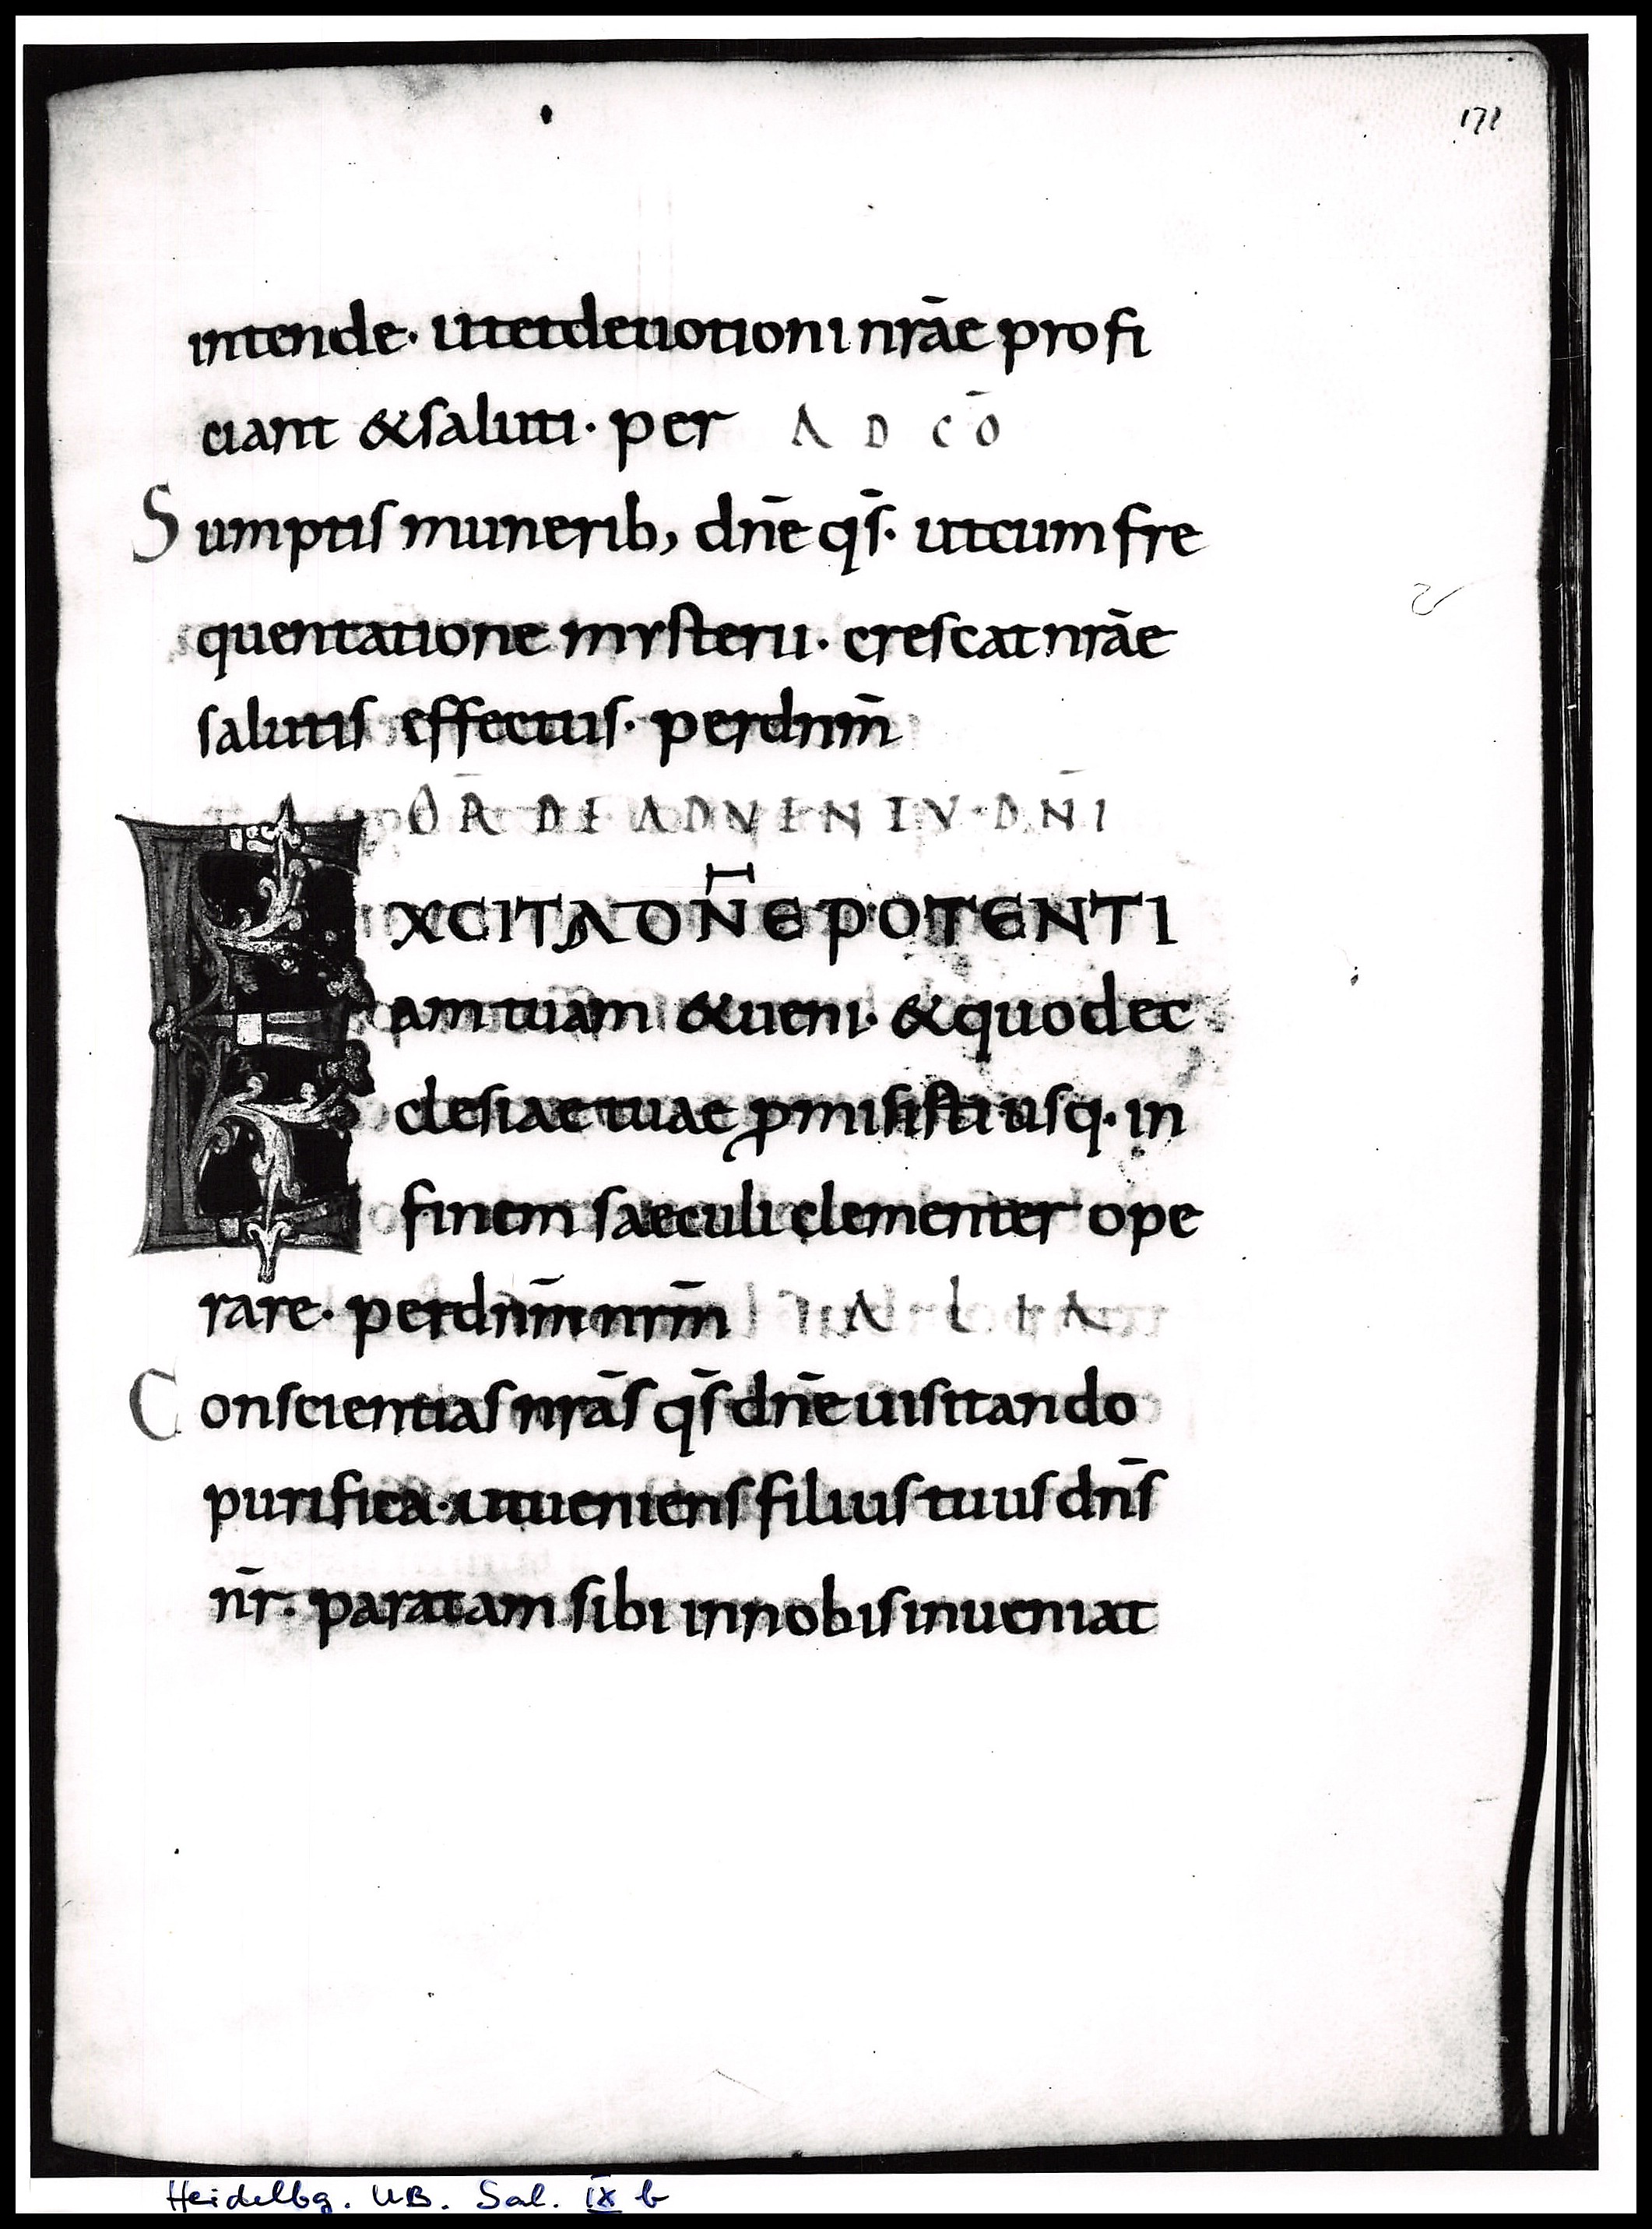 171
intende· utetdeuotioni nrāe profi
ciant &saluti· per A D C Ō
Sumptis munerib, dn̄e qs̄· utcumfre
quentatione mysterii· crescatnrāe
salutis effectus· perdnm̄
OR̄ DE ADVENTV·DN̄I
EXCITADN̄EPOTENTI
amtuam &ueni· &quodec
clesiaetuae ꝓmisisti usq· in
finem saeculi clementer ope
rare· perdnm̄nrm̄ ALIA
Conscientiasnrās qs̄dn̄euisitando
purifica·utueniensfiliustuusdns̄
nr̄· paratamsibi innobisinueniat
Heidelbg. UB. Sal. IX b